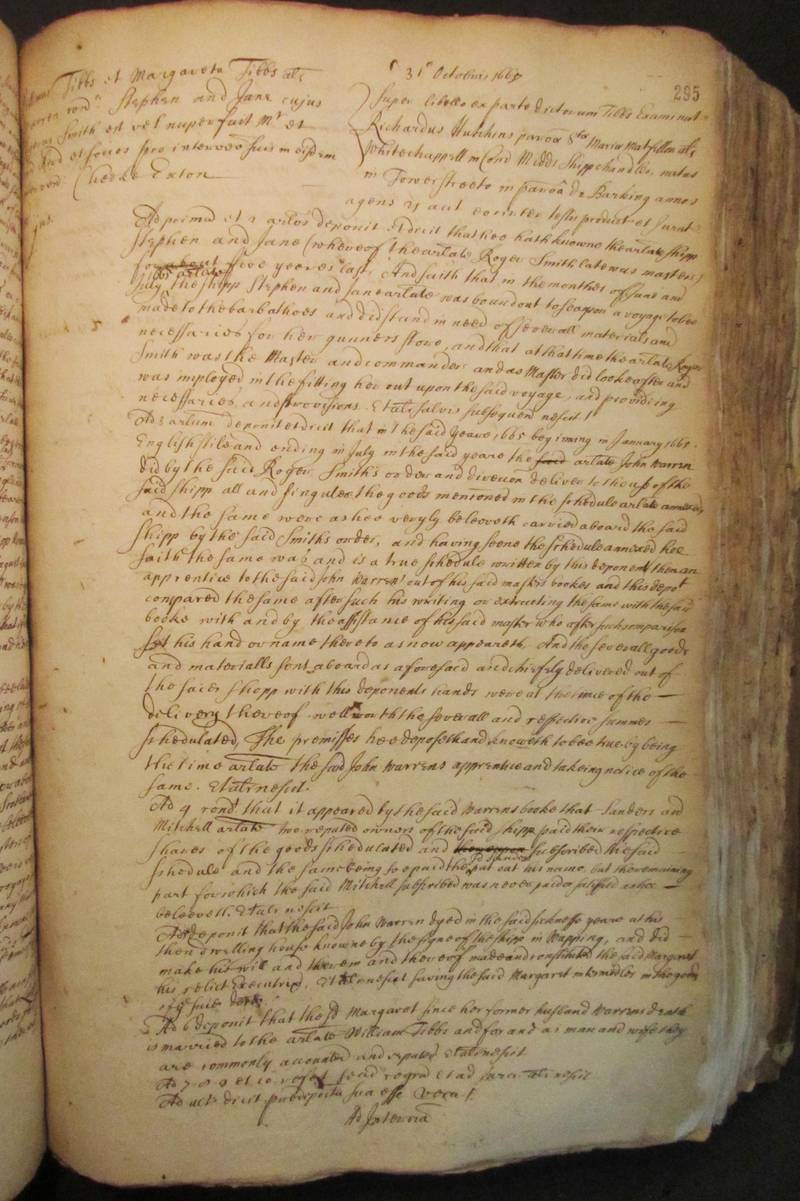 295
31° Octobris 1668
Tibbs et Margareta Tibbs als
Stephen and Jane cujus
Smith et vel nuper fuit Mr et
et ses pro interesse suis in eisdem
Cheeke Exton
Super libello ex parte dictorum Tibbs Examinat
Richardus Hutchins paroa Stæ Mariæ Matfellon als
Whitechappell in Com Midds Shippchandler, natus
in Towerstreete in paroa de Barking annos
agens aut eo circiter testis product et Jurat
Ad primu et 2 artos deponit et dicit that hee hath knowne the arlate shipp
Stephen and Jane (whereof the arlate Roger Smith late was master)
for five yeeres last And saith that in the monthes of June and
July the shipp Stephen and Jane arlate was bound out to sea upon a voyage to bee
made to the barbathoes and did stand in need of severall materialls and
necessaries for her gunners store, and that at that time the arlate Roger
Smith was the Master and commander and as Master did looke after and
was imployed in the fitting her out upon the said voyage, and providing
necessaries and provisions. Et alr salvis subsequen nescit
Ad 3 artum deponit et dicit that in the said yeare 1665 beginning in January 1665
English stile and ending in July in the said yeare the said arlate John Warren
did by the said Roger Smiths order and direction deliver to the use of the
said shipp all and singuler the goods mencioned in the schedule arlate annexed
and the same were as hee veryly beleeveth carried aboard the said
shipp by the said Smiths order, and having seene the schedule annexed hee
saith the same was and is a true schedule written by this deponent then an
apprentice to the said John Warren out of his said masters bookes and this depot
compared the same after such his writing or extracting the same with the said
bookes with and by the assistance of his said master who after such comparison
set his hand or name thereto as now appeareth, And the severall goods
and materialls sent aboard as aforesaid and chiefly delivered out of
the said shopp with this deponents hands were at the time of the
delivery thereof well worth the severall and respective summes
schedulated, The premisses hee deposeth and knoweth to bee true by being
the time arlate the said John Warrens apprentice and takeing notice of the
same. Et alr nescit.
Ad 4 rondt that it appeared by the said Warrens booke that Sanders and
Mitchell arlate two reputed owners of the said shipp paid their respective
shares of the goods schedulated and subscribed the said
schedule and the same being so paid the said Sanders put out his name, but the remaining
part for which the said Mitchell subscribed was never paid or satisfied as hee
beleeveth. Et alr nescit
Ad 5 deponit that the said John Warren dyed in the said sicknesse yeare at his
then dwelling house knowne by the signe of the shipp in Wapping, and did
make his will and therein and thereof made and constituted the said Margaret
his relict Executrix, Et alr nescit saving the said Margaret intermedled in the goods
of the said
Ad 6 deponit that the sd Margaret since her former husband Warrens death
is married to the arlate William Tibbs and for and as man and wife they
are commonly accounted and reputed Et alr nescit
Ad 7 8 9 et 10 refert se ad regrm et ad jura alr nescit
Ad ult dicit predeposita sua esse vera
Ad Interria